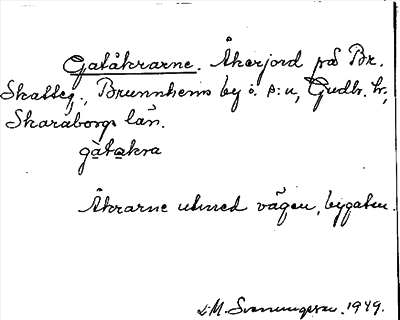 Gatåkrarne. Åkerjord på Br.
Skatteg., Brunnhems by o. s:n, Gudh. hr,
Skaraborgs län.
gàtakra
Åkrarne utmed vägen, bygatan.
L.M. Svenungsson. 1949.